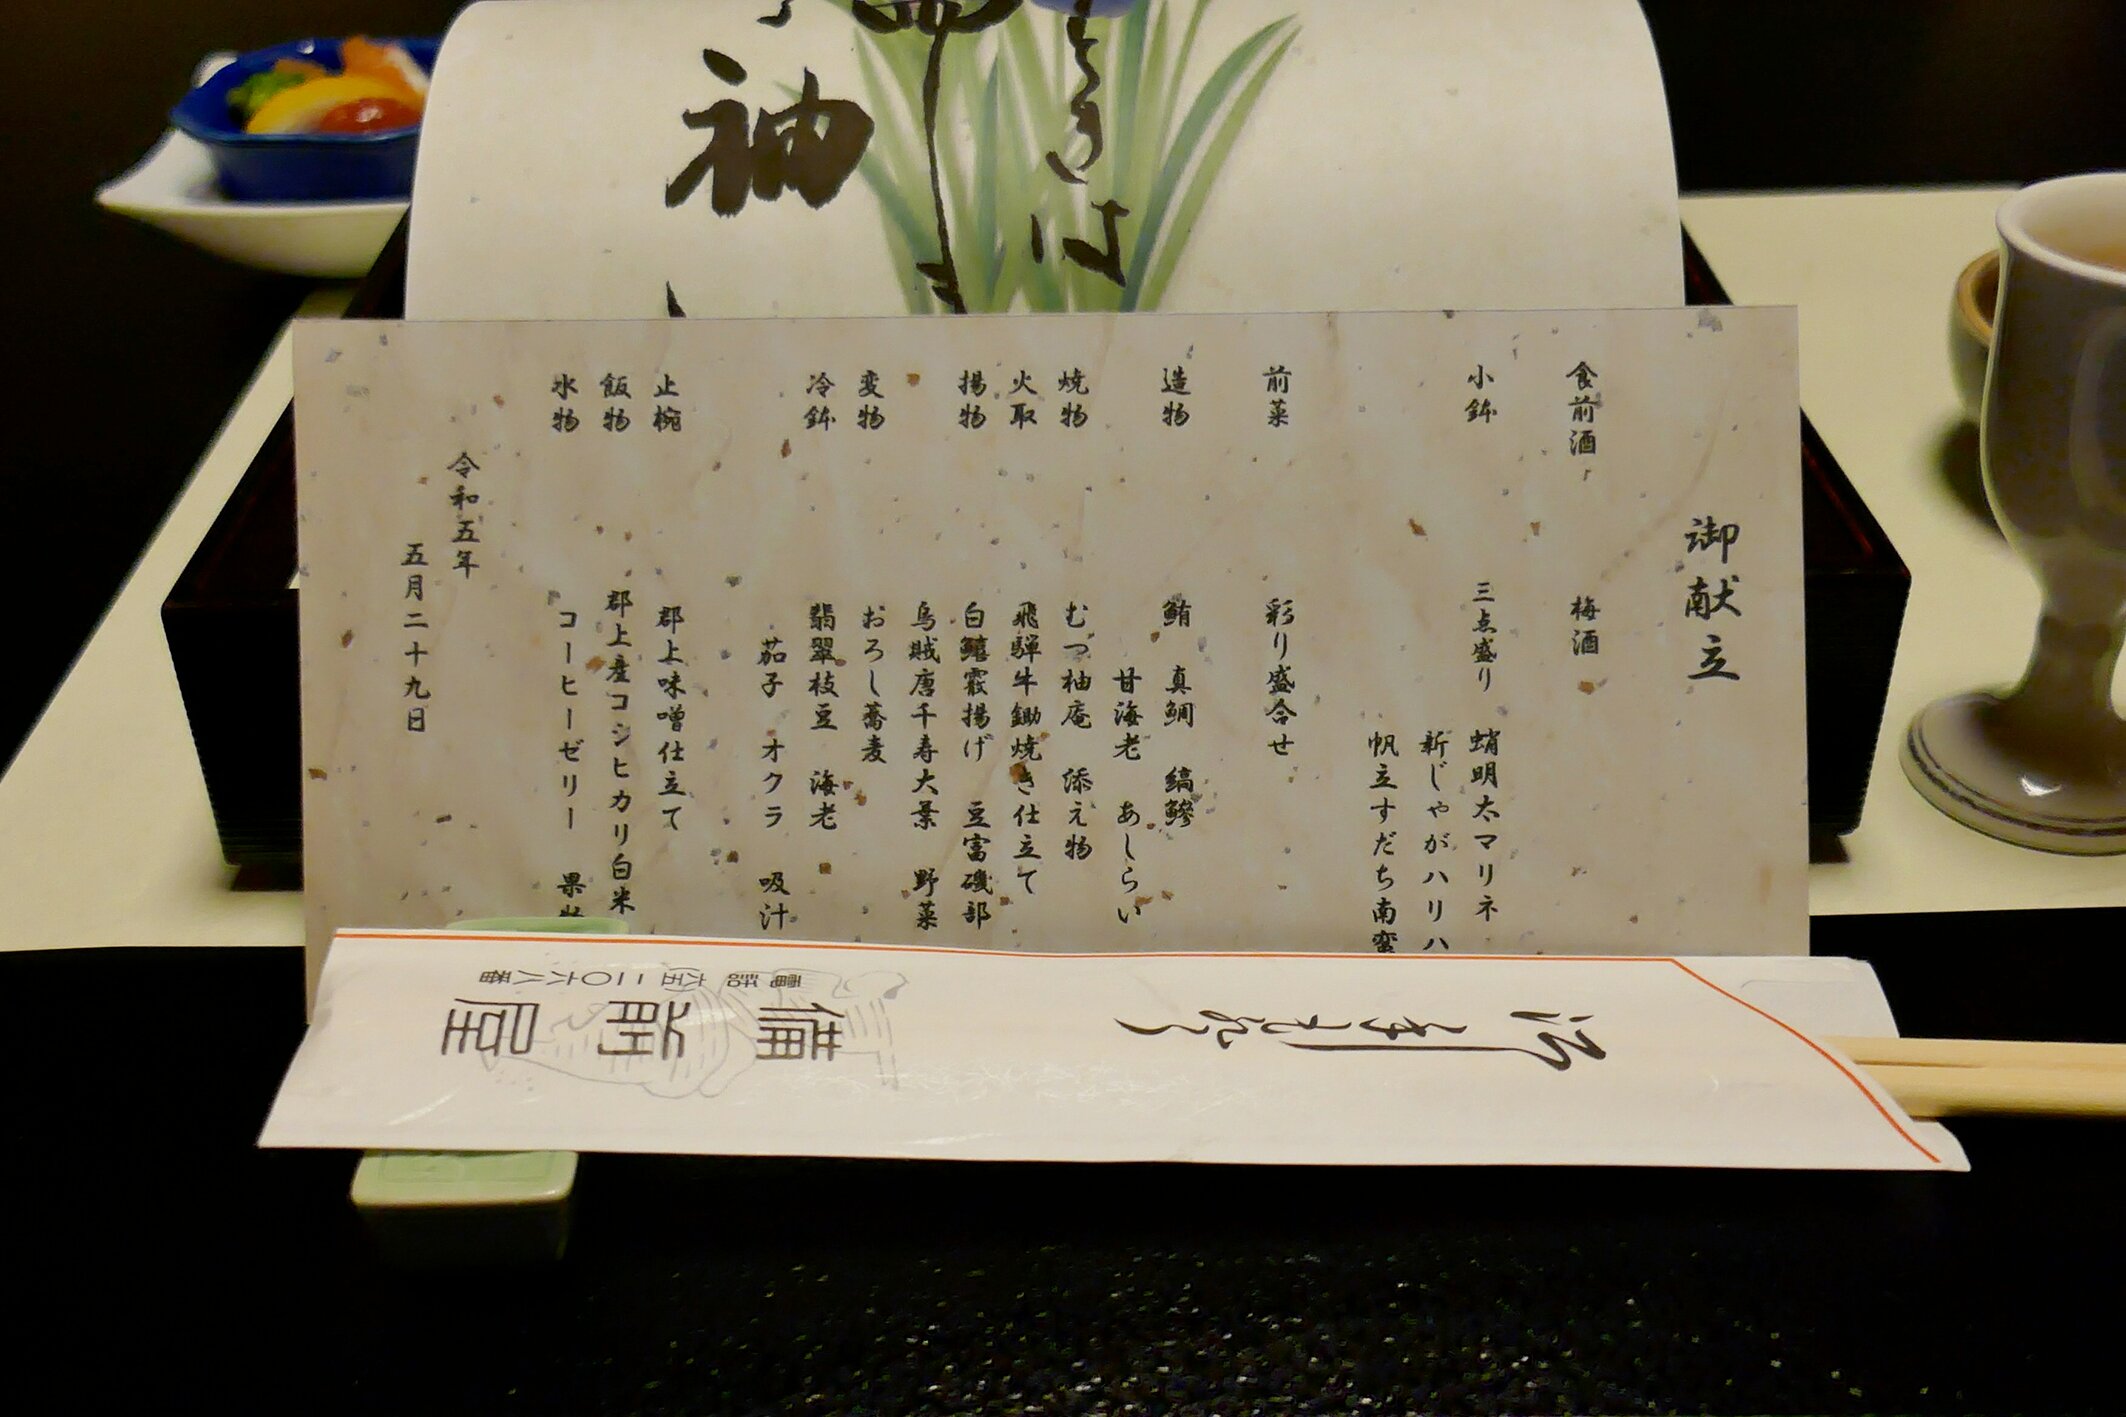 御献立
食前酒 梅酒
小鉢 三点盛り 蛸明太マリネ
新じゃがハリハ
帆立すだち南蛮
前菜 彩り盛合せ
造物 鮪 真鯛 縞鰺
甘海老 あしらい
焼物 むつ柚庵 添え物
火取 飛騨牛鋤焼き仕立て
揚物 白鱚霰揚げ 豆富磯部
烏賊唐千寿大葉 野菜
変物 おろし蕎麦
冷鉢 翡翠枝豆 海老
茄子 オクラ 吸汁
止椀 郡上味噌仕立て
飯物 郡上産コシヒカリ白米
水物 コーヒーゼリー 果物
令和五年
五月二十九日
袖
は
備前屋
電話 六五―二〇六八番